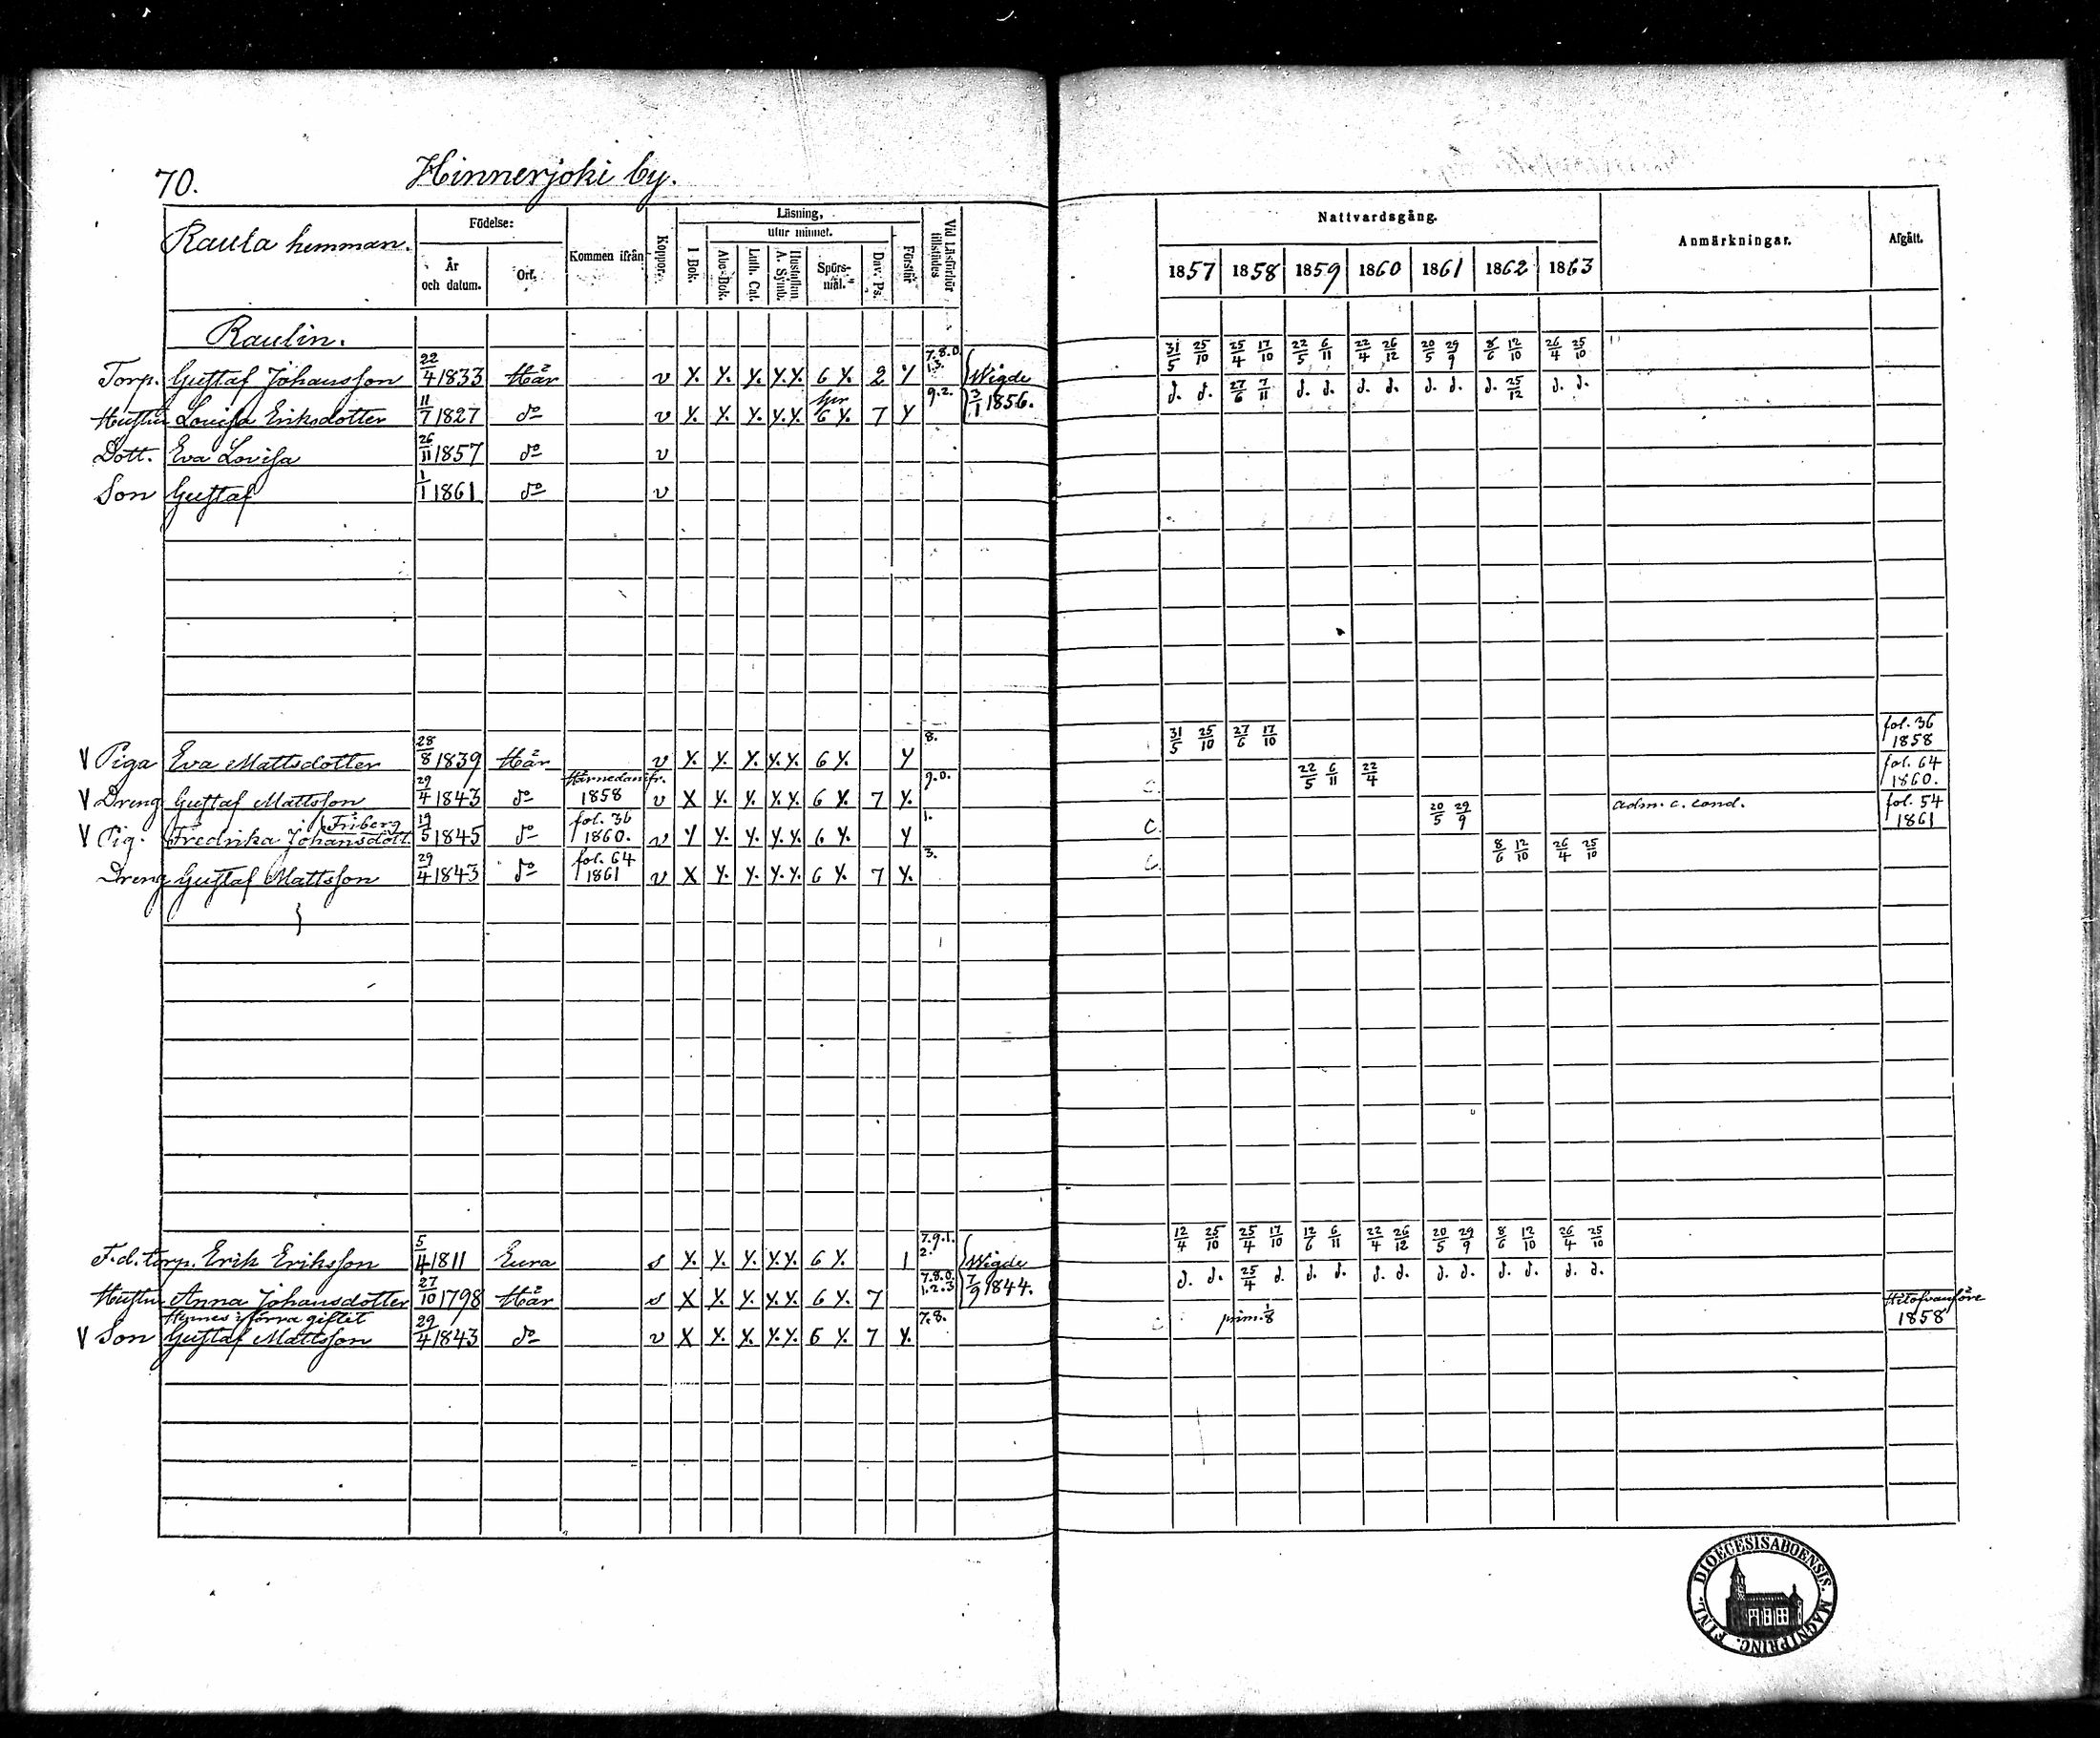 70. Hinnerjoki by.
Raula hemman.
Födelse:
År och datum.
Ort.
Kommen ifrån
Koppor.
Läsning,
utur minnet.
I Bok.
Abc-Bok.
Luth. Cat.
Hustaflan A. Symb.
Spörs-mål.
Dav. Ps.
Förstår
Vid Läsförhör tillstädes
Nattvardsgång.
1857 1858 1859 1860 1861 1862 1863
Anmärkningar.
Afgått.
Raulin.
Torp. Gustaf Johansson 22/4 1833 Här v Y. Y. Y. Y.Y. 6 Y. 2 Y 7.8.0. 1.3. Wigde 31/5 25/10 25/4 17/10 22/5 6/11 22/4 26/12 20/5 29/9 8/6 12/10 26/4 25/10
Hustru Lovisa Eriksdotter 11/7 1827 do v Y. Y. Y. Y.Y. 6 Y. 7 Y 9.2. 3/1 1856. d. d. 27/6 7/11 d. d. d. d. d. d. d. 25/12 d. d.
Dott. Eva Lovisa 26/11 1857 do v
Son Gustaf 1/1 1861 do v
V Piga Eva Mattsdotter 28/8 1839 Här v Y. Y. Y. Y.Y. 6 Y. Y 8. 31/5 25/10 27/6 17/10 fol. 36 1858
V Dreng Gustaf Mattsson 29/4 1843 do Härnedanifr. 1858 v X Y. Y. Y.Y. 6 Y. 7 Y. 9.0. C. 22/5 6/11 22/4 fol. 64 1860.
V Pig. Fredrika Johansdott. Friberg 19/5 1845 do fol. 36 1860. v Y Y. Y. Y.Y. 6 Y. Y 1. C. 20/5 29/9 adm. c. cond. fol. 54 1861
Dreng Gustaf Mattsson 29/4 1843 do fol. 64 1861 v X Y. Y. Y.Y. 6 Y. 7 Y. 3. C. 8/6 12/10 26/4 25/10
F.d. torp. Erik Eriksson 5/4 1811 Eura s Y. Y. Y. Y.Y. 6 Y. 1 7.9.1. 2. Wigde 12/4 25/10 25/4 17/10 12/6 6/11 22/4 26/12 20/5 29/9 8/6 12/10 26/4 25/10
Hustru Anna Johansdotter 27/10 1798 Här s X Y. Y. Y.Y. 6 Y. 7 7.8.0. 1.2.3 7/9 1844. d. d. 25/4 d. d. d. d. d. d. d. d. d. d. d.
Hennes i förra giftet
V Son Gustaf Mattsson 29/4 1843 do v X Y. Y. Y.Y. 6 Y. 7 Y. 7.8. C. prim. 1/8 Hitofvanföre 1858
DIOECESIS ABOENSIS. MAGNI PRINC. FINL.